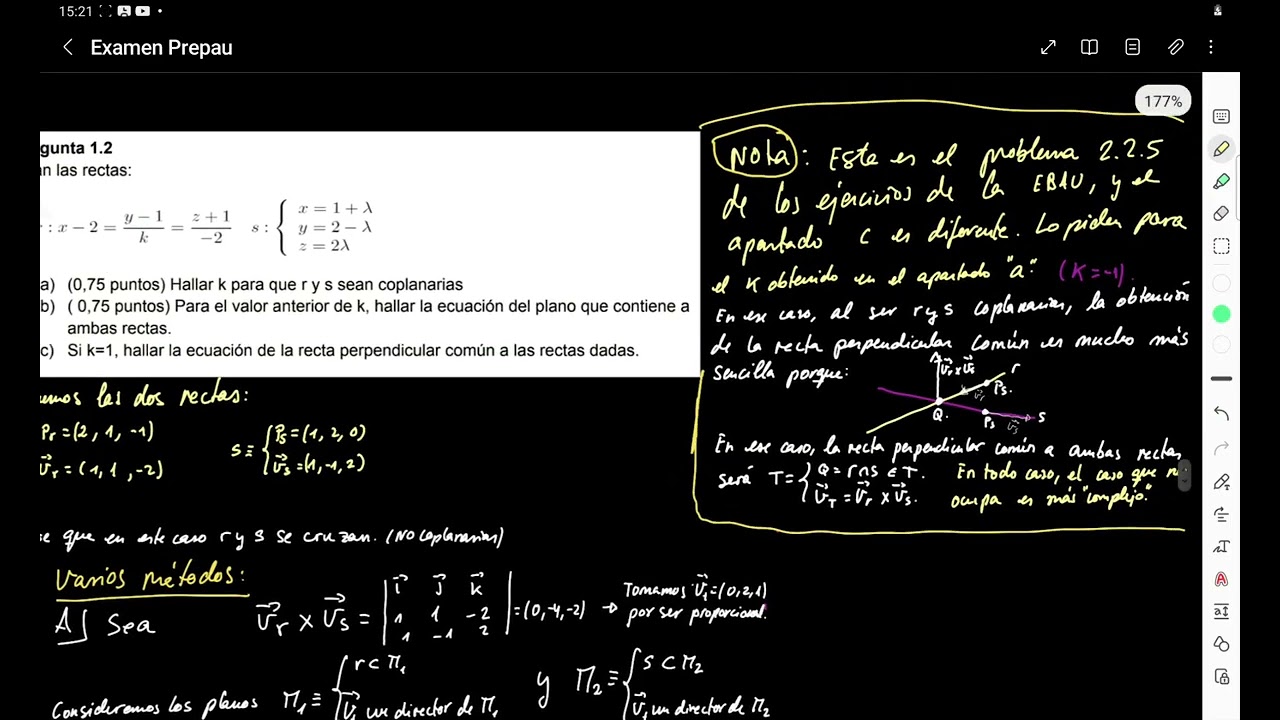 15:21
Examen Prepau
177%
gunta 1.2
an las rectas:
: x − 2 = (y − 1)/k = (z + 1)/−2 s : { x = 1 + λ
y = 2 − λ
z = 2λ
a) (0,75 puntos) Hallar k para que r y s sean coplanarias
b) ( 0,75 puntos) Para el valor anterior de k, hallar la ecuación del plano que contiene a
ambas rectas.
c) Si k=1, hallar la ecuación de la recta perpendicular común a las rectas dadas.
Nota: Este es el problema 2.2.5
de los ejercicios de la EBAU, y el
apartado c es diferente. Lo piden para
el K obtenido en el apartado "a". (K=-1).
En ese caso, al ser r y s coplanarias, la obtención
de la recta perpendicular común es mucho más
sencilla porque:
v⃗r x v⃗s
r
v⃗r
Ps.
Q.
Ps
v⃗s
s
En ese caso, la recta perpendicular común a ambas rectas
será T = { Q = r∩s ∈ T.
v⃗T = v⃗r x v⃗s.
En todo caso, el caso que n
ocupa es más "complejo".
emos las dos rectas:
Pr = (2, 1, -1)
v⃗r = (1, 1, -2)
s ≡ { Ps = (1, 2, 0)
v⃗s = (1, -1, 2)
e que en este caso r y s se cruzan. (No coplanarias)
Varios métodos:
A] Sea v⃗r x v⃗s = | i⃗ j⃗ k⃗
1 1 -2
1 -1 2 | = (0, -4, -2) → Tomamos v⃗1 = (0, 2, 1)
por ser proporcional.
Consideremos los planos Π1 ≡ { r ⊂ Π1
v⃗1 un director de Π1
y Π2 ≡ { s ⊂ Π2
v⃗1 un director de Π2